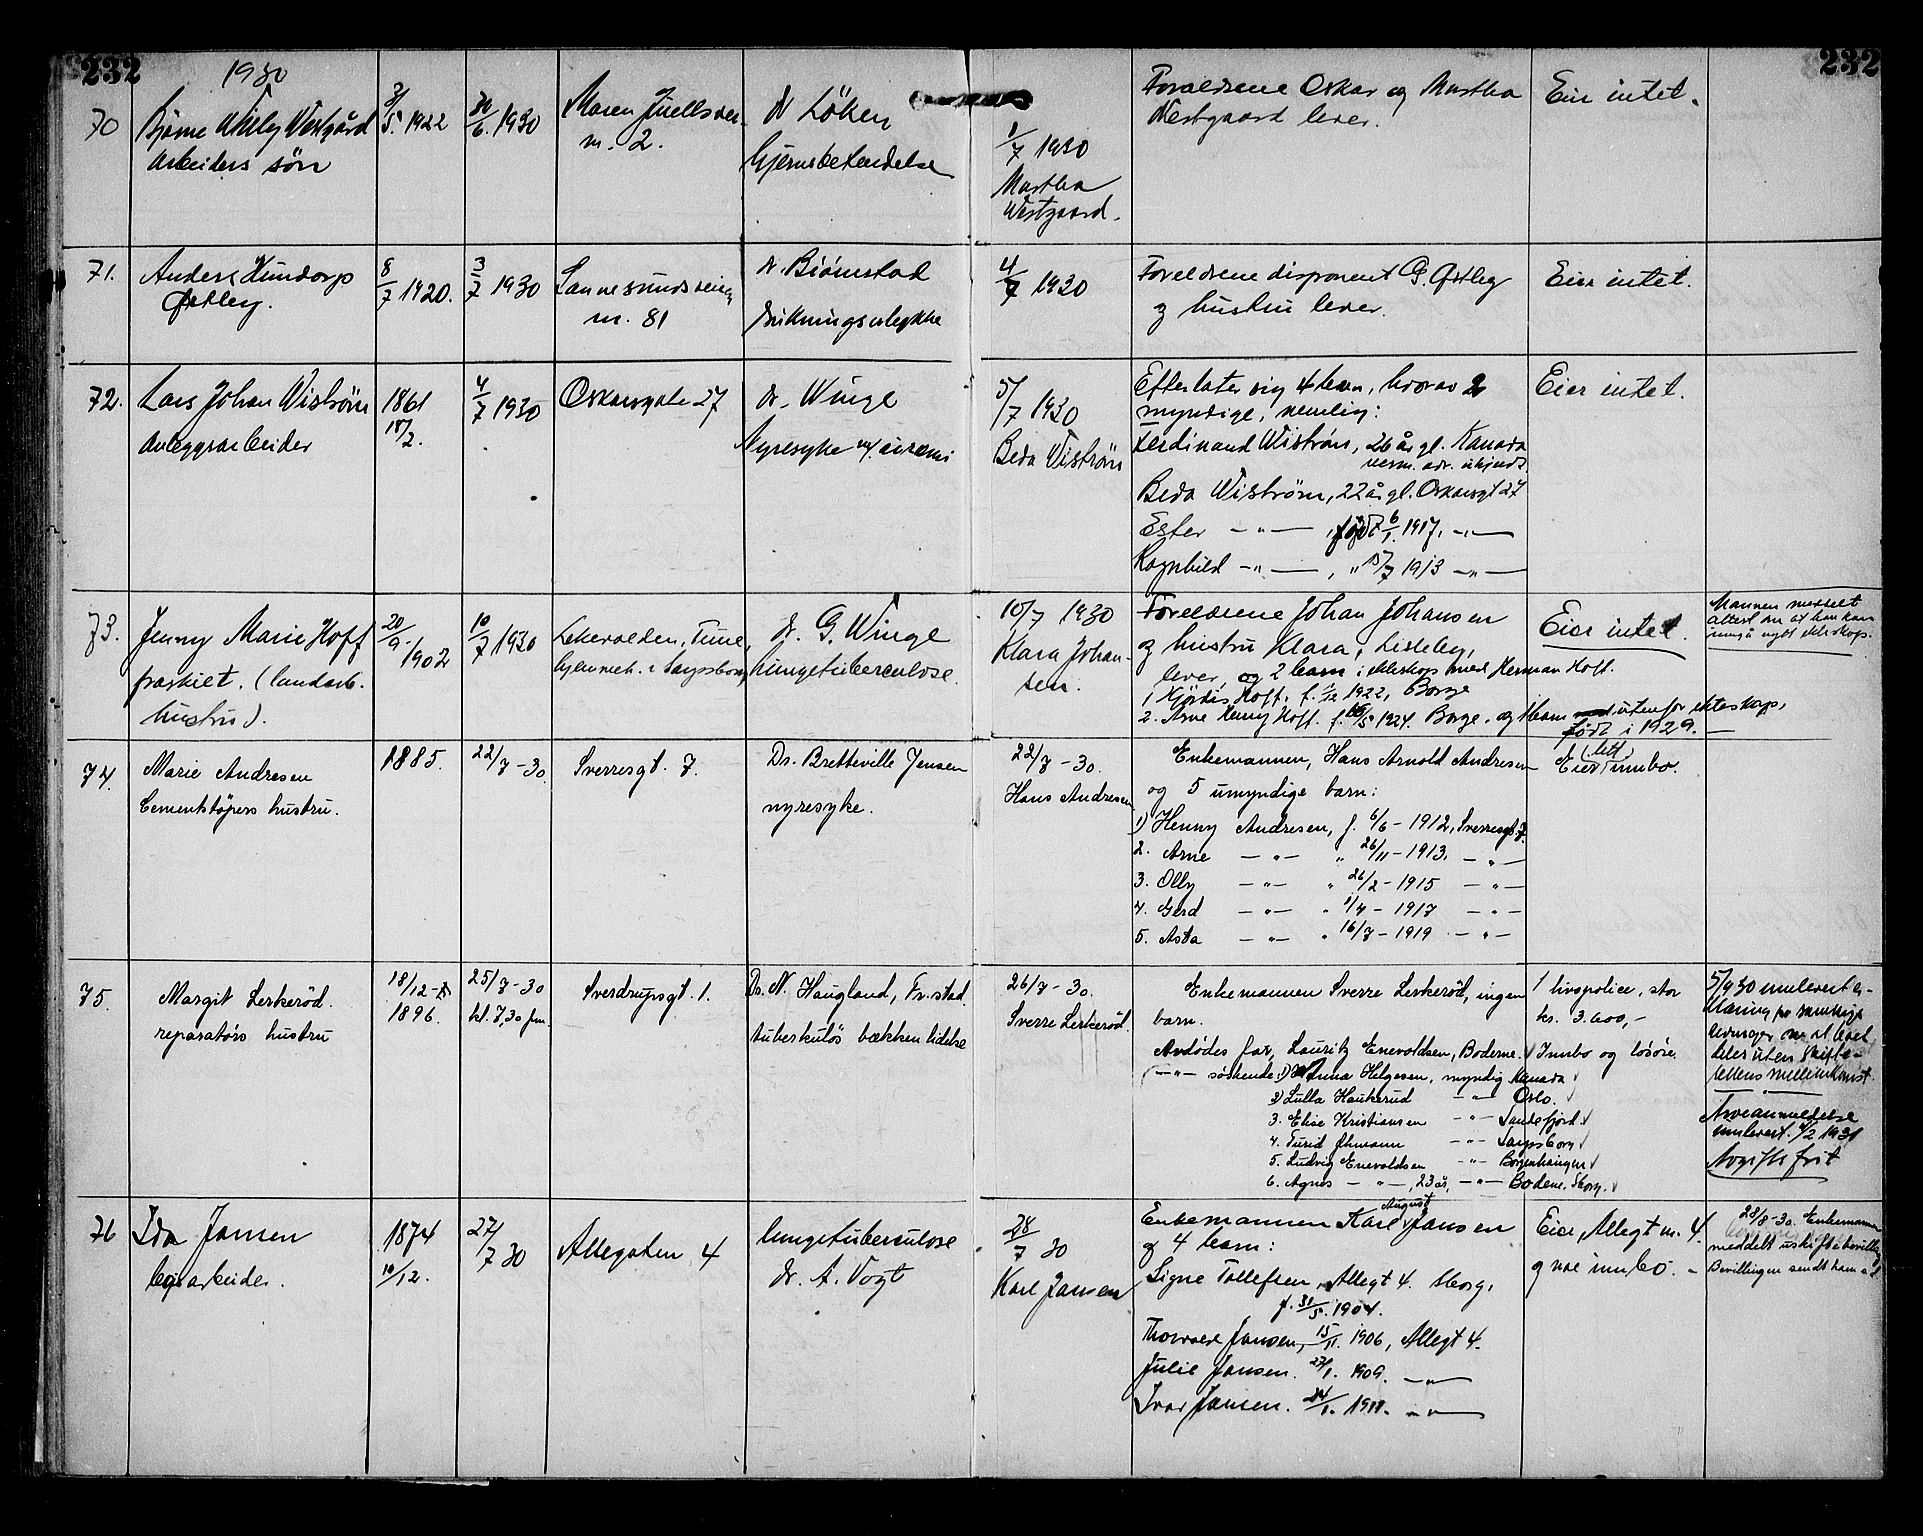 232
232
1930
70
Bjarne Willy Vestgård
arbeiders søn
3/5. 1922
30/6. 1930
Maren Juells vei
nr. 2.
dr Löken
hjernebetendelse
1/7 1930
Martha
Westgaard.
Foreldrene Oskar og Martha
Westgaard lever.
Eier intet.
71.
Anders Hundorp
Østbey.
8/7 1920.
3/7 1930
Sannesundsveien
nr. 81
dr. Biørnstad
drukningsulykke
4/7 1930
Foreldrene disponent G. Østbey
og hustru lever.
Eier intet.
72.
Lars Johan Wistrøm
anleggsarbeider
1861
18/2.
4/7 1930
Oskarsgate 27
dr. Winge
Nyresyke m/ uremi
5/7 1930
Beda Wistrøm
Efterlater sig 4 barn, hvorav 2
myndige, nemlig:
Ferdinand Wistrøm, 26 år gl. Kanada
nerm. adr. ukjendt.
Beda Wistrøm, 22 år gl. Oskarsgt 27
Ester — " — , født 6/1. 1917, — " —
Ragnhild — " — , " 15/7 1913 — " —
73.
Jenny Marie Hoff
fraskilt. (landarb.
hustru).
20/9. 1902
10/7 1930
Lekevolden, Tune,
hjemmeh. i Sarpsborg
dr. G. Winge
lungetuberculose.
10/7 1930
Klara Johan-
sen.
Foreldrene Johan Johansen
og hustru Klara, Lisleby,
lever, og 2 barn i ekteskap med Herman Hoff.
1 Hjørdis Hoff, f. 1/12 1922, Borge
2. Arne Henry Hoff. f. 16/5 1924. Borge. og 1 barn utenfor ekteskap,
født i 1929. —
Eier intet.
Mannen meddelt
attest om at han kan
inngå nytt ekteskap.
74.
Marie Andresen
Cementstøpers hustru.
1885.
22/7 - 30.
Sverresgt. 7.
Dr. Bretteville Jensen
nyresyke.
22/7 - 30.
Hans Andresen
Enkemannen, Hans Arnold Andresen
og 5 umyndige barn:
1) Henny Andresen, f. 6/6 - 1912, Sverresgt. 7.
2. Arne — " — " 26/11 - 1913. — " —
3. Olly — " — " 26/2 - 1915 — " —
4. Gerd — " — " 1/4 - 1917 — " —
5. Asta — " — " 16/7 - 1919 — " —
(litt)
Eier innbo.
75.
Margit Lerkerød.
reparatørs hustru
18/12 -
1896.
25/7 - 30
kl. 7,30 fm.
Sverdrupsgt. 1.
Dr. N. Haugland, Fr.stad
tuberkuløs bækkenlidelse
26/7 - 30.
Sverre Lerkerød.
Enkemannen Sverre Lerkerød, ingen
barn.
Avdødes far, Lauritz Enevoldsen, Boderne.
— " — søskende: 1) Anna Helgesen, myndig Kanada
2) Lulla Haukerud — " — Oslo.
3. Elise Kristiansen — " — Sandefjord.
4. Turid Øhmann — " — Sarpsborg
5. Ludvig Enevoldsen — " — Borgenhaugen
6. Agnes — " —, 23 år, — " — Bodene. Sborg.
1 livspolice, stor
kr. 3.600,-
Innbo og løsøre.
5/9 30 innlevert er-
klæring fra samtlige
arvinger om at boet
deles uten skifte-
rettens mellemkomst.
Arveanmeldelse
innlevert. 4/2 1931
Avgiftsfrit
76
Ida Jansen
arbeider.
1874
10/12.
27/7 30
Allegaten 4
lungetuberculose
dr. A. Vogt
28/7 30
Karl Jansen
August
Enkemannen Karl Jansen
og 4 barn:
Signe Tollefsen, Allegt 4. Sborg,
f. 31/5. 1904.
Thorvald Jansen, 15/11. 1906, Allegt 4.
Julie Jansen. 27/1. 1909. — " —
Ivar Jansen. 24/1. 1911. — " —
Eier, Allegt nr. 4.
og noe innbo. —
28/8-30. Enkemannen
meddelt uskiftebevilling
Bevillingen sendt ham s.d.